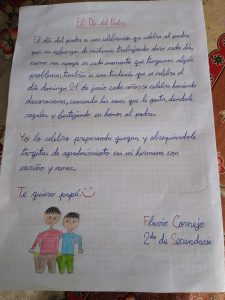 El Día del Padre
El día del padre es una celebración que celebra al padre
por su esfuerzo de estarnos trabajando duro cada día,
como nos apoya en cada momento que tengamos algún
problema, también es una tradición que se celebra el
día domingo 21 de junio cada año, se celebra haciendo
decoraciones, comiendo las cosas que le gusta, dándole
regalos y festejando en honor al padre.
Yo lo celebro preparando queques y obsequiándole
tarjetas de agradecimiento con mi hermana con
cariño y amor.
Te quiero papá
Flavio Cornejo
2do de Secundaria